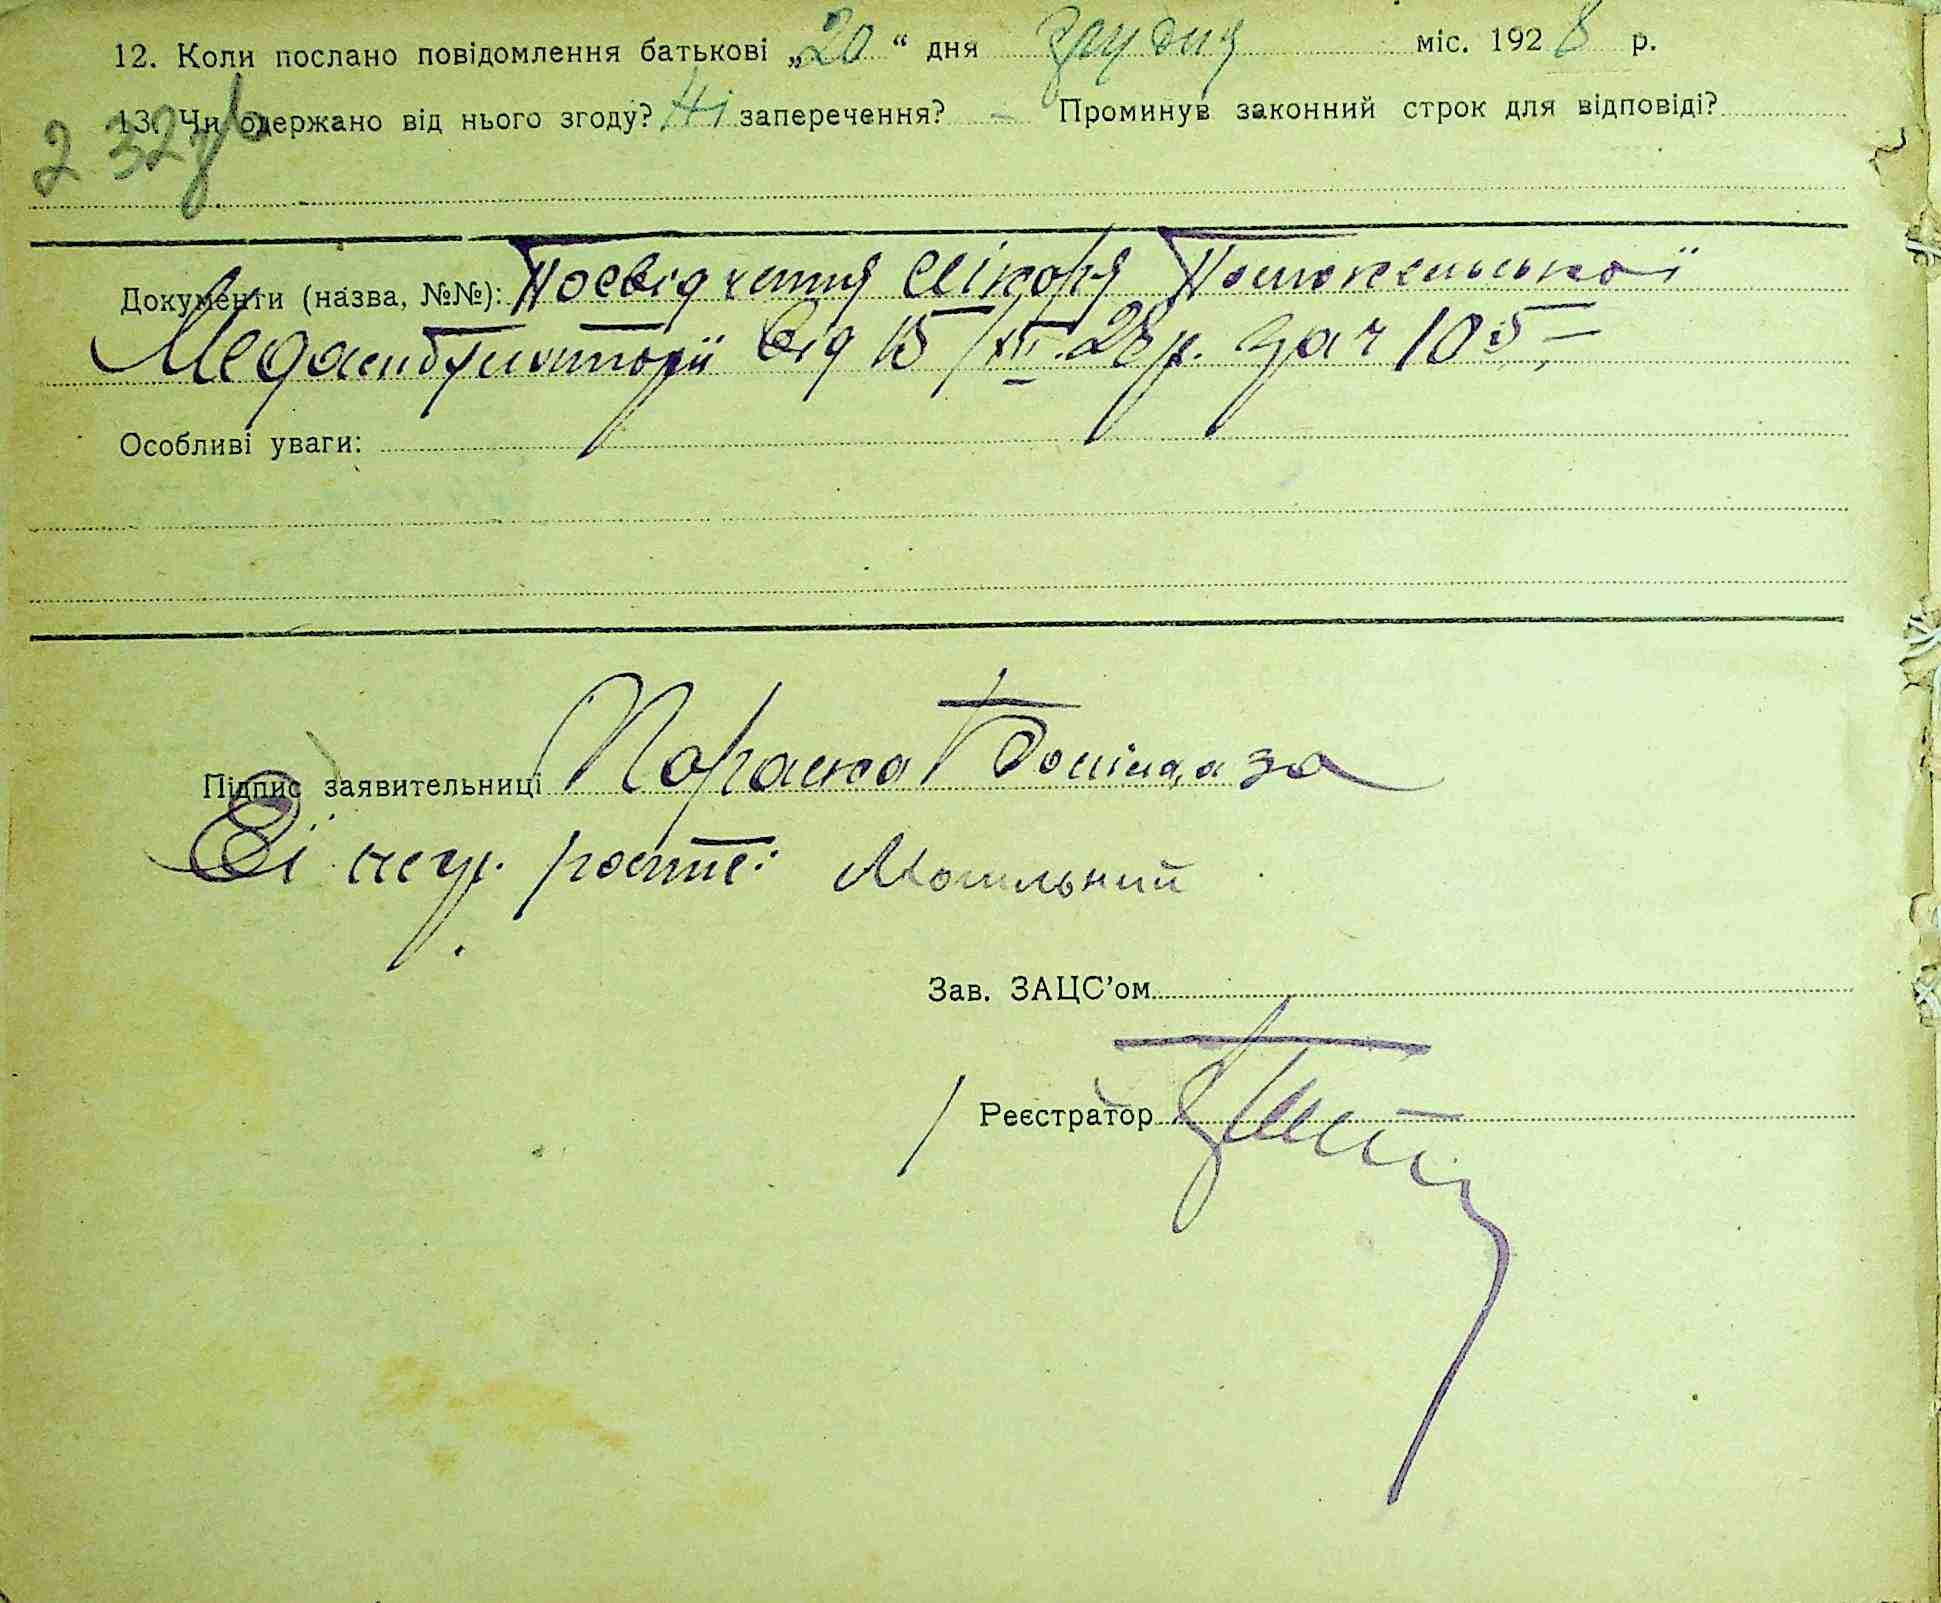 12. Коли послано повідомлення батькові „20“ дня грудня міс. 1928 р.
13. Чи одержано від нього згоду? Ні заперечення? – Проминув законний строк для відповіді?
2 32
Документи (назва, №№): Посвідчення лікаря
Медамбуляторії від 15/XII.28р. за ч 105–
Особливі уваги:
Підпис заявительниці Параска за
Её негр. росте:
Зав. ЗАЦС’ом
Реєстратор